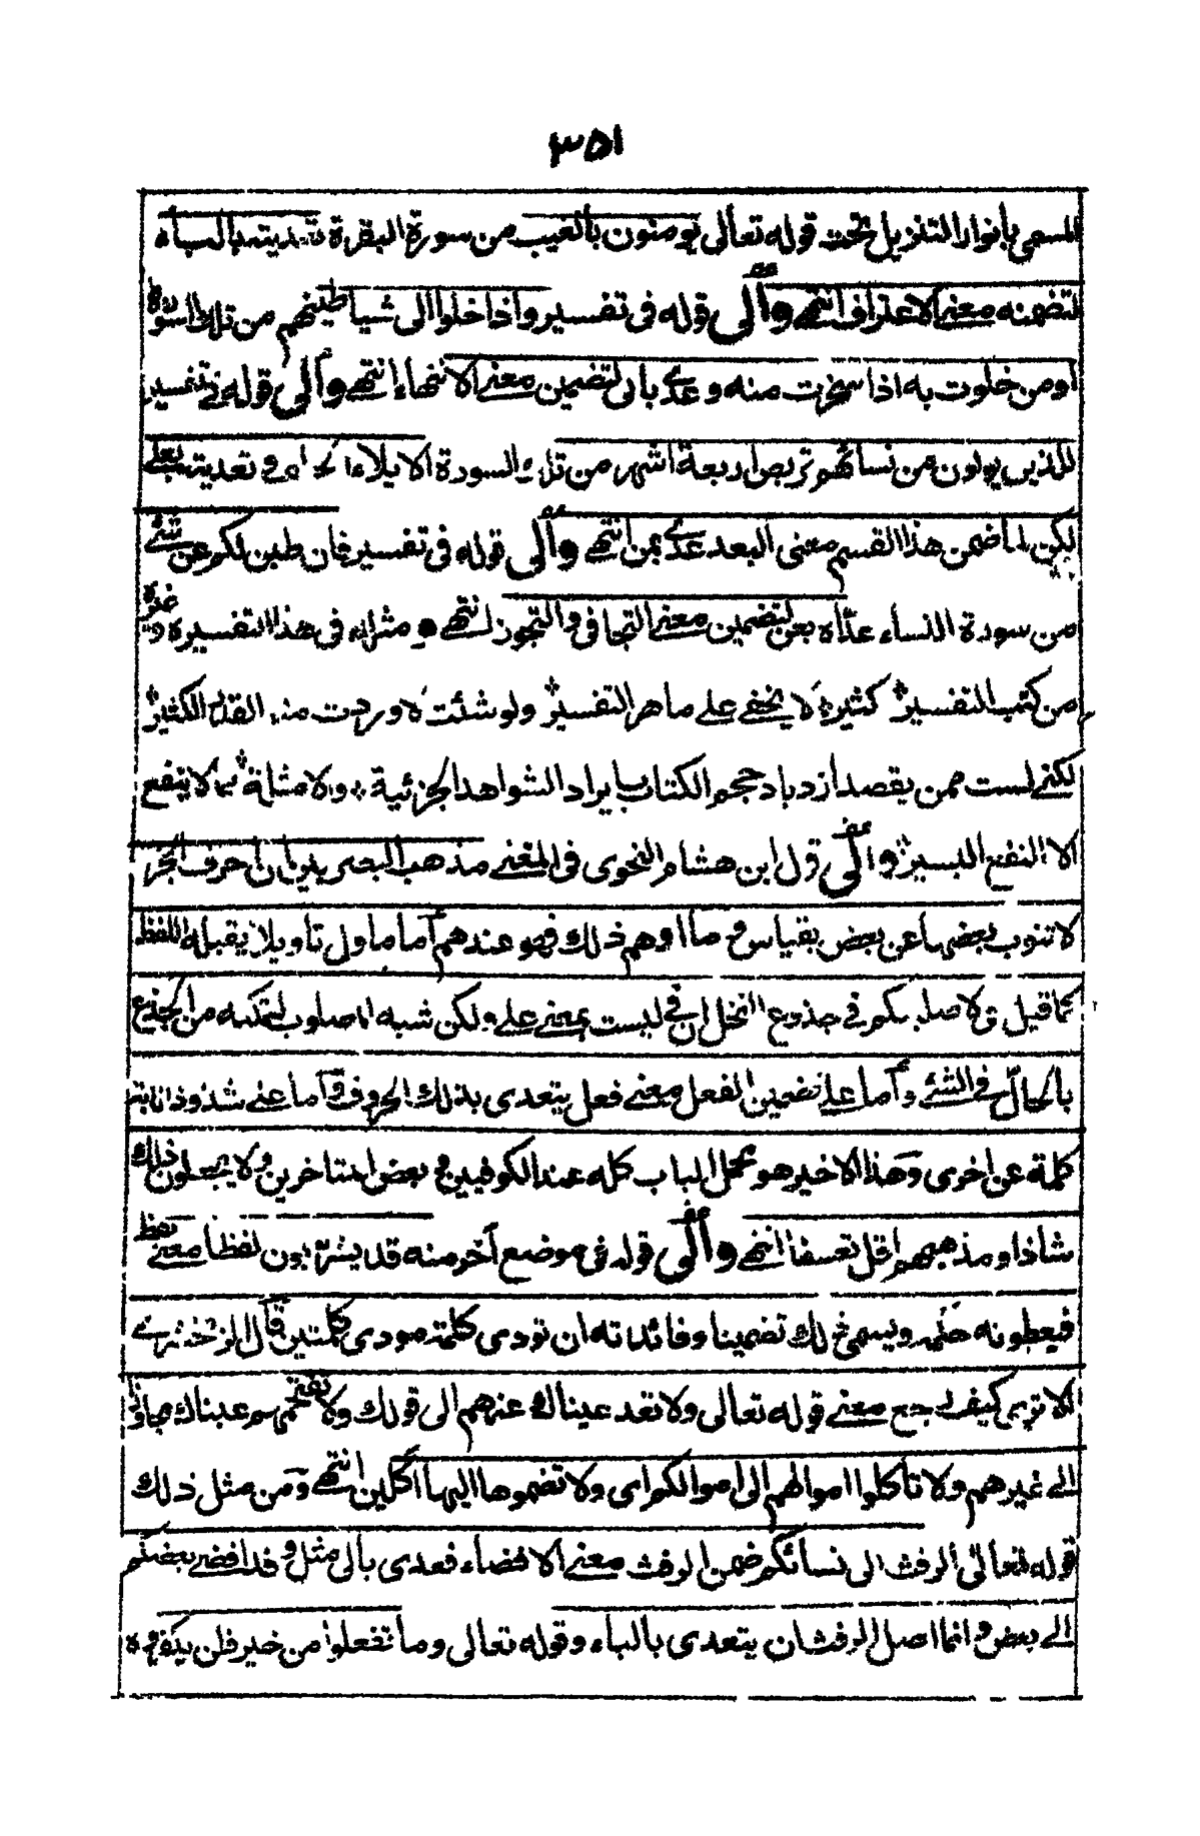 ٣٥١
المسمى بأنوار التنزيل تحت قوله تعالى يومنون بالغيب من سورة البقرة تعديته بالباء
لتضمنه معنى الاعتراف انتهى والى قوله فى تفسير واذا خلوا الى شياطينهم من تلك السورة
او من خلوت به اذا سخرت منه وعدى بالى لتضمين معنى الانهاء انتهى والى قوله فى تفسير
للذين يولون من نسائهم تربص اربعة اشهر من تلك السورة الايلاء الحلف وتعديته بعلى
لكن لما ضمن هذا القسم معنى البعد عدى بمن انتهى والى قوله فى تفسير فان طبن لكم عن شئ
من سورة النساء عداه بعن لتضمين معنى التجافى والتجوز انتهى ومثله فى هذا التفسير وغيره
من كتب التفسير كثيرة لا يخفى على ماهر التفسير ولو شئت لاوردت منه القدر الكثير
لكنى لست ممن يقصد ازدياد حجم الكتاب بايراد الشواهد الجزئية والامثلة مما لا ينفع
الا النفع اليسير والى قول ابن هشام النحوى فى المغنى مذهب البصريين ان احرف الجر
لا تنوب بعضها عن بعض بقياس وما اوهم ذلك فهو عندهم اما ماول تاويلا يقبله اللفظ
كما قيل فى لاصلبنكم فى جذوع النخل ان فى ليست بمعنى على ولكن شبه المصلوب لتمكنه من الجذع
بالحال فى الشئ واما على تضمين الفعل معنى فعل يتعدى بذلك الحروف واما على شذوذ انابة
كلمة عن اخرى وهذا الاخير هو محمل الباب كله عند الكوفيين وبعض المتاخرين ولا يجعلون ذلك
شاذا ومذهبهم اقل تعسفا انتهى والى قوله فى موضع آخر منه قد يشربون لفظا معنى لفظ
فيعطونه حكمه ويسمى ذلك تضمينا وفائدته ان تودى كلمة مودى كلمتين قال الزمخشرى
الا ترى كيف رجع معنى قوله تعالى ولا تعد عيناك عنهم الى قولك ولا تقتحمهم عيناك مجاوزا
الى غيرهم ولا تأكلوا اموالهم الى اموالكم اى ولا تضموها اليها آكلين انتهى ومن مثل ذلك
قوله تعالى الرفث الى نسائكم ضمن الرفث معنى الافضاء فعدى بالى مثل وقد افضى بعضكم
الى بعض وانما اصل الرفث ان يتعدى بالباء وقوله تعالى وما تفعلوا من خير فلن يكفروه